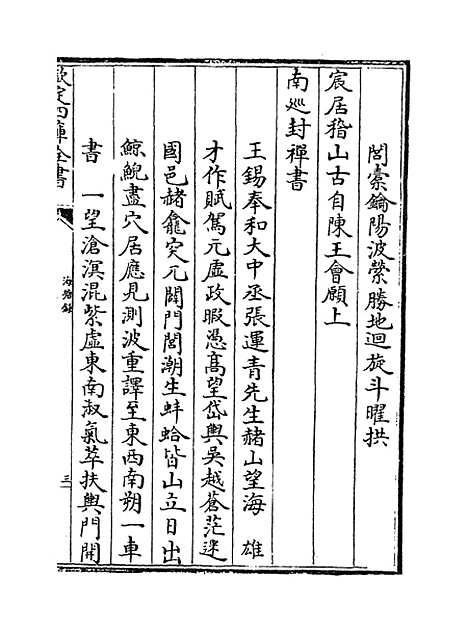 閭橐鑰陽波縈勝地迴旋斗曜拱
宸居稽山古自陳王會願上
南廵封禪書
王錫奉和大中丞張運青先生赭山望海　雄
才作賦駕元虛政暇憑髙望岱輿吳越蒼茫迷
國邑赭龕突兀闢門閭潮生蚌蛤皆山立日出
鯨鯢盡穴居應見測波重譯至東西南朔一車
書　一望滄溟混紫虛東南淑氣萃扶輿門開
欽定四庫全書
海塘録
三